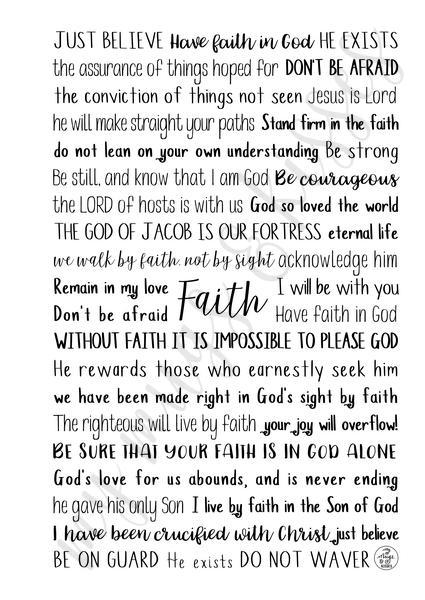 JUST BELIEVE Have faith in God HE EXISTS
the assurance of things hoped for DON'T BE AFRAID
the conviction of things not seen Jesus is Lord
he will make straight your paths Stand firm in the faith
do not lean on your own understanding Be strong
Be still, and know that I am God Be courageous
the LORD of hosts is with us God so loved the world
THE GOD OF JACOB IS OUR FORTRESS eternal life
we walk by faith, not by sight acknowledge him
Remain in my love
Don't be afraid
Faith
I will be with you
Have faith in God
WITHOUT FAITH IT IS IMPOSSIBLE TO PLEASE GOD
He rewards those who earnestly seek him
we have been made right in God's sight by faith
The righteous will live by faith your joy will overflow!
BE SURE THAT YOUR FAITH IS IN GOD ALONE
God's love for us abounds, and is never ending
he gave his only Son I live by faith in the Son of God
I have been crucified with Christ just believe
BE ON GUARD He exists DO NOT WAVER